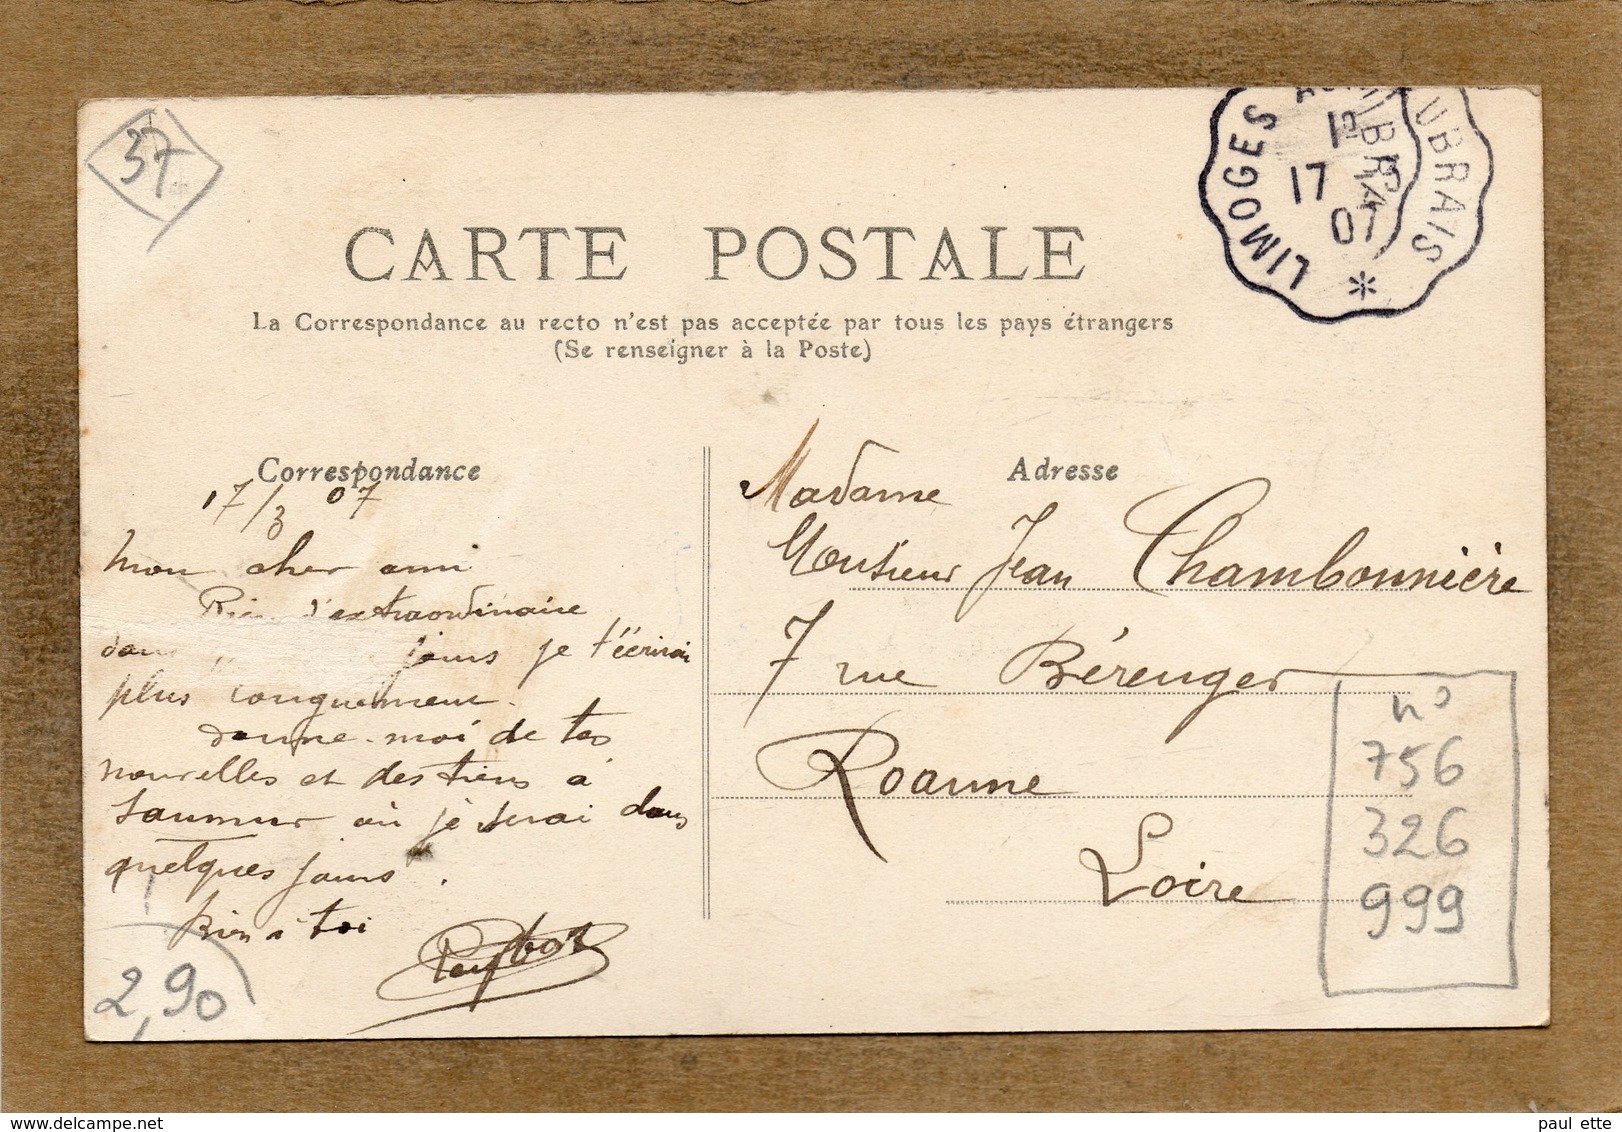 37
CARTE POSTALE
La Correspondance au recto n'est pas acceptée par tous les pays étrangers
(Se renseigner à la Poste)
LIMOGES
UBRAIS
17 3
07
*
Correspondance
17/3 07
mon cher ami
Rien d'extraordinaire
dans jours je t'écrirai
plus longuement.
donne-moi de tes
nouvelles et des tiens à
Saumur où je serai dans
quelques jours.
Rien à toi
Adresse
Madame
Monsieur Jean Chambonnière
7 rue Bérenger
Roanne
Loire
n°
756
326
999
2,90
paul ette